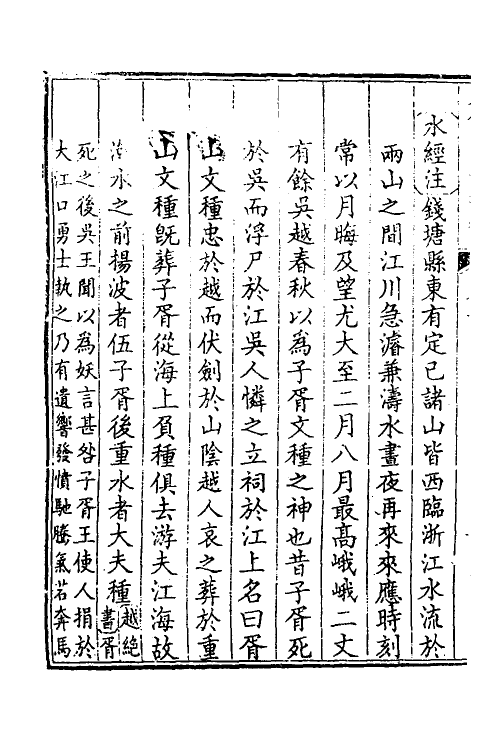 水經注錢塘縣東有定已諸山皆西臨浙江水流於
兩山之間江川急濬兼濤水晝夜再來來應時刻
常以月晦及望尤大至二月八月最髙峨峨二丈
有餘吳越春秋以為子胥文種之神也昔子胥死
於吳而浮尸於江吳人憐之立祠於江上名曰胥
山文種忠於越而伏劍於山陰越人哀之葬於重
山文種旣葬子胥從海上負種俱去游夫江海故
潮水之前楊波者伍子胥後重水者大夫種越絶書胥
死之後吳王聞以為妖言甚咎子胥王使人捐於
大江口勇士執之乃有遺響發憤馳騰氣若奔馬